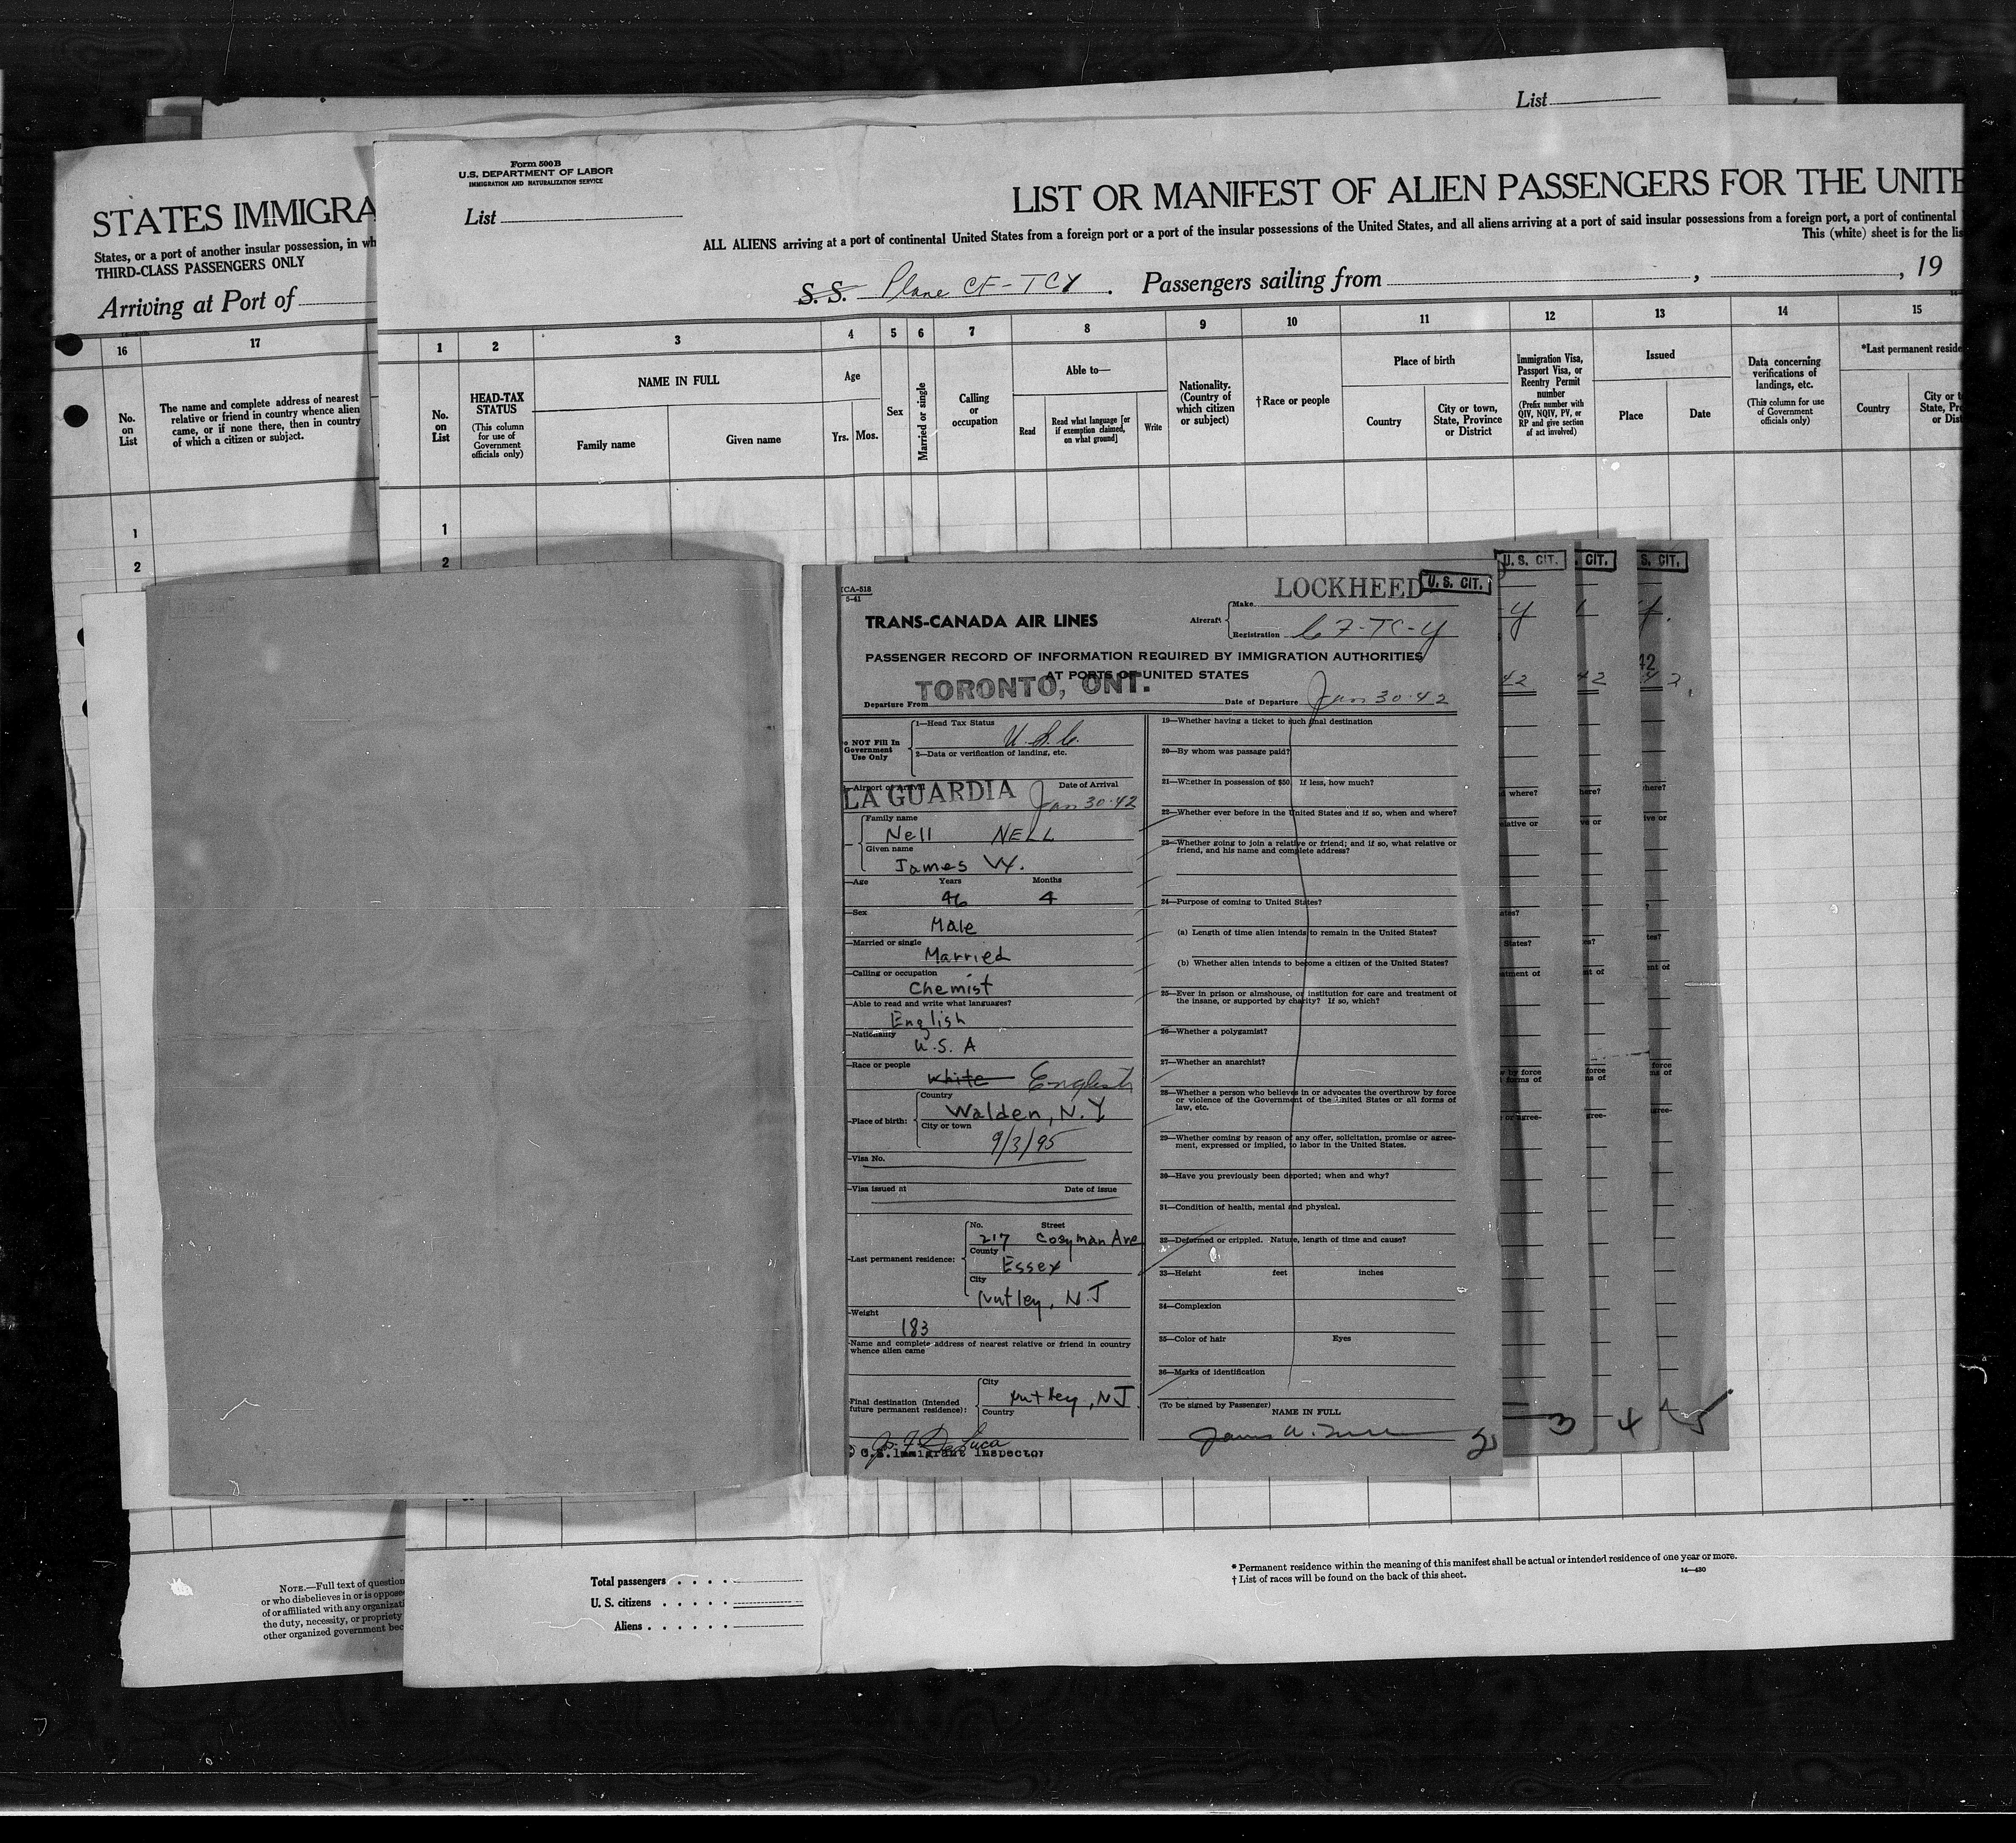 List
Form 500B
U.S. DEPARTMENT OF LABOR
IMMIGRATION AND NATURALIZATION SERVICE
List
LIST OR MANIFEST OF ALIEN PASSENGERS FOR THE UNITE
ALL ALIENS arriving at a port of continental United States from a foreign port or a port of the insular possessions of the United States, and all aliens arriving at a port of said insular possessions from a foreign port, a port of continental
This (white) sheet is for the lis
S. S. Plane CF-TCY . Passengers sailing from , , 19
STATES IMMIGRA
States, or a port of another insular possession, in wh
THIRD-CLASS PASSENGERS ONLY
Arriving at Port of
16 17
No. on List
The name and complete address of nearest
relative or friend in country whence alien
came, or if none there, then in country
of which a citizen or subject.
1
2
1 2 3 4 5 6 7 8 9 10 11 12 13 14 15
No. on List
HEAD-TAX STATUS
(This column for use of Government officials only)
NAME IN FULL
Family name Given name
Age
Yrs. Mos.
Sex
Married or single
Calling or occupation
Able to—
Read
Read what language [or if exemption claimed, on what ground]
Write
Nationality. (Country of which citizen or subject)
†Race or people
Place of birth
Country
City or town, State, Province or District
Immigration Visa, Passport Visa, or Reentry Permit number
(Prefix number with QIV, NQIV, PV, or RP and give section of act involved)
Issued
Place Date
Data concerning verifications of landings, etc.
(This column for use of Government officials only)
*Last permanent reside
Country
City or t
State, Pr
or Dist
1
2
CA-518
5-41
LOCKHEED
U. S. CIT.
U. S. CIT.
CIT.
S. CIT.
TRANS-CANADA AIR LINES
Aircraft
Make
Registration CF-TC-Y
PASSENGER RECORD OF INFORMATION REQUIRED BY IMMIGRATION AUTHORITIES
AT PORTS OF UNITED STATES
Departure From TORONTO, ONT.
Date of Departure Jan 30-42
NOT Fill In
Government
Use Only
1—Head Tax Status
U.S.C.
2—Data or verification of landing, etc.
Airport of Arrival LA GUARDIA
Date of Arrival Jan 30-42
Family name
Nell NELL
Given name
James W.
—Age Years Months
46 4
—Sex
Male
—Married or single
Married
—Calling or occupation
Chemist
—Able to read and write what languages?
English
—Nationality
U.S.A
—Race or people
White English
—Place of birth:
Country
Walden, N.Y
City or town
9/3/95
—Visa No.
—Visa issued at Date of issue
—Last permanent residence:
No. Street
217 Coeyman Ave
County
Essex
City
Nutley, N.J
—Weight
183
—Name and complete address of nearest relative or friend in country
whence alien came
—Final destination (Intended
future permanent residence):
City
Nutley, NJ.
Country
De Luca
U.S. Immigrant Inspector
19—Whether having a ticket to such final destination
20—By whom was passage paid?
21—Whether in possession of $50. If less, how much?
22—Whether ever before in the United States and if so, when and where?
23—Whether going to join a relative or friend; and if so, what relative or
friend, and his name and complete address?
24—Purpose of coming to United States?
(a) Length of time alien intends to remain in the United States?
(b) Whether alien intends to become a citizen of the United States?
25—Ever in prison or almshouse, or institution for care and treatment of
the insane, or supported by charity? If so, which?
26—Whether a polygamist?
27—Whether an anarchist?
28—Whether a person who believes in or advocates the overthrow by force
or violence of the Government of the United States or all forms of
law, etc.
29—Whether coming by reason of any offer, solicitation, promise or agree-
ment, expressed or implied, to labor in the United States.
30—Have you previously been deported; when and why?
31—Condition of health, mental and physical.
32—Deformed or crippled. Nature, length of time and cause?
33—Height feet inches
34—Complexion
35—Color of hair Eyes
36—Marks of identification
(To be signed by Passenger)
NAME IN FULL
James W. Nell
2
3
4
5
NOTE.—Full text of question
or who disbelieves in or is oppose
of or affiliated with any organizati
the duty, necessity, or propriety
other organized government bec
Total passengers
U. S. citizens
Aliens
* Permanent residence within the meaning of this manifest shall be actual or intended residence of one year or more.
† List of races will be found on the back of this sheet.
14—430